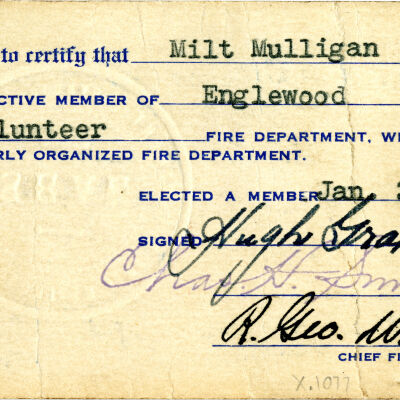 to certify that Milt Mulligan
CTIVE MEMBER OF Englewood
lunteer FIRE DEPARTMENT, W
RLY ORGANIZED FIRE DEPARTMENT.
ELECTED A MEMBER Jan
SIGNED Hugh
Chas H.
R. Geo.
CHIEF F
X.1077